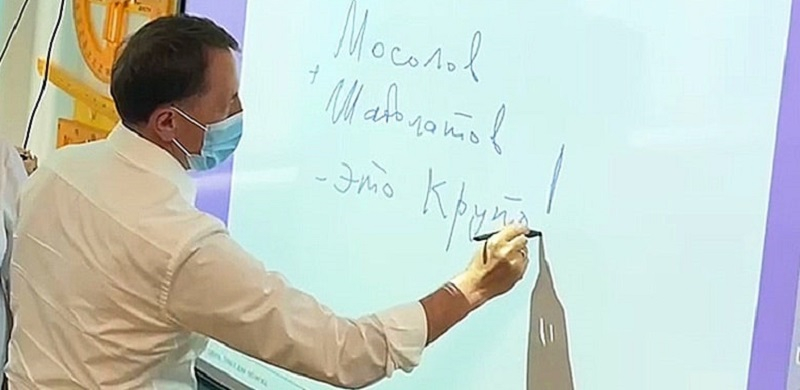 Мосолов
+ Шаболатов
- это Круто!